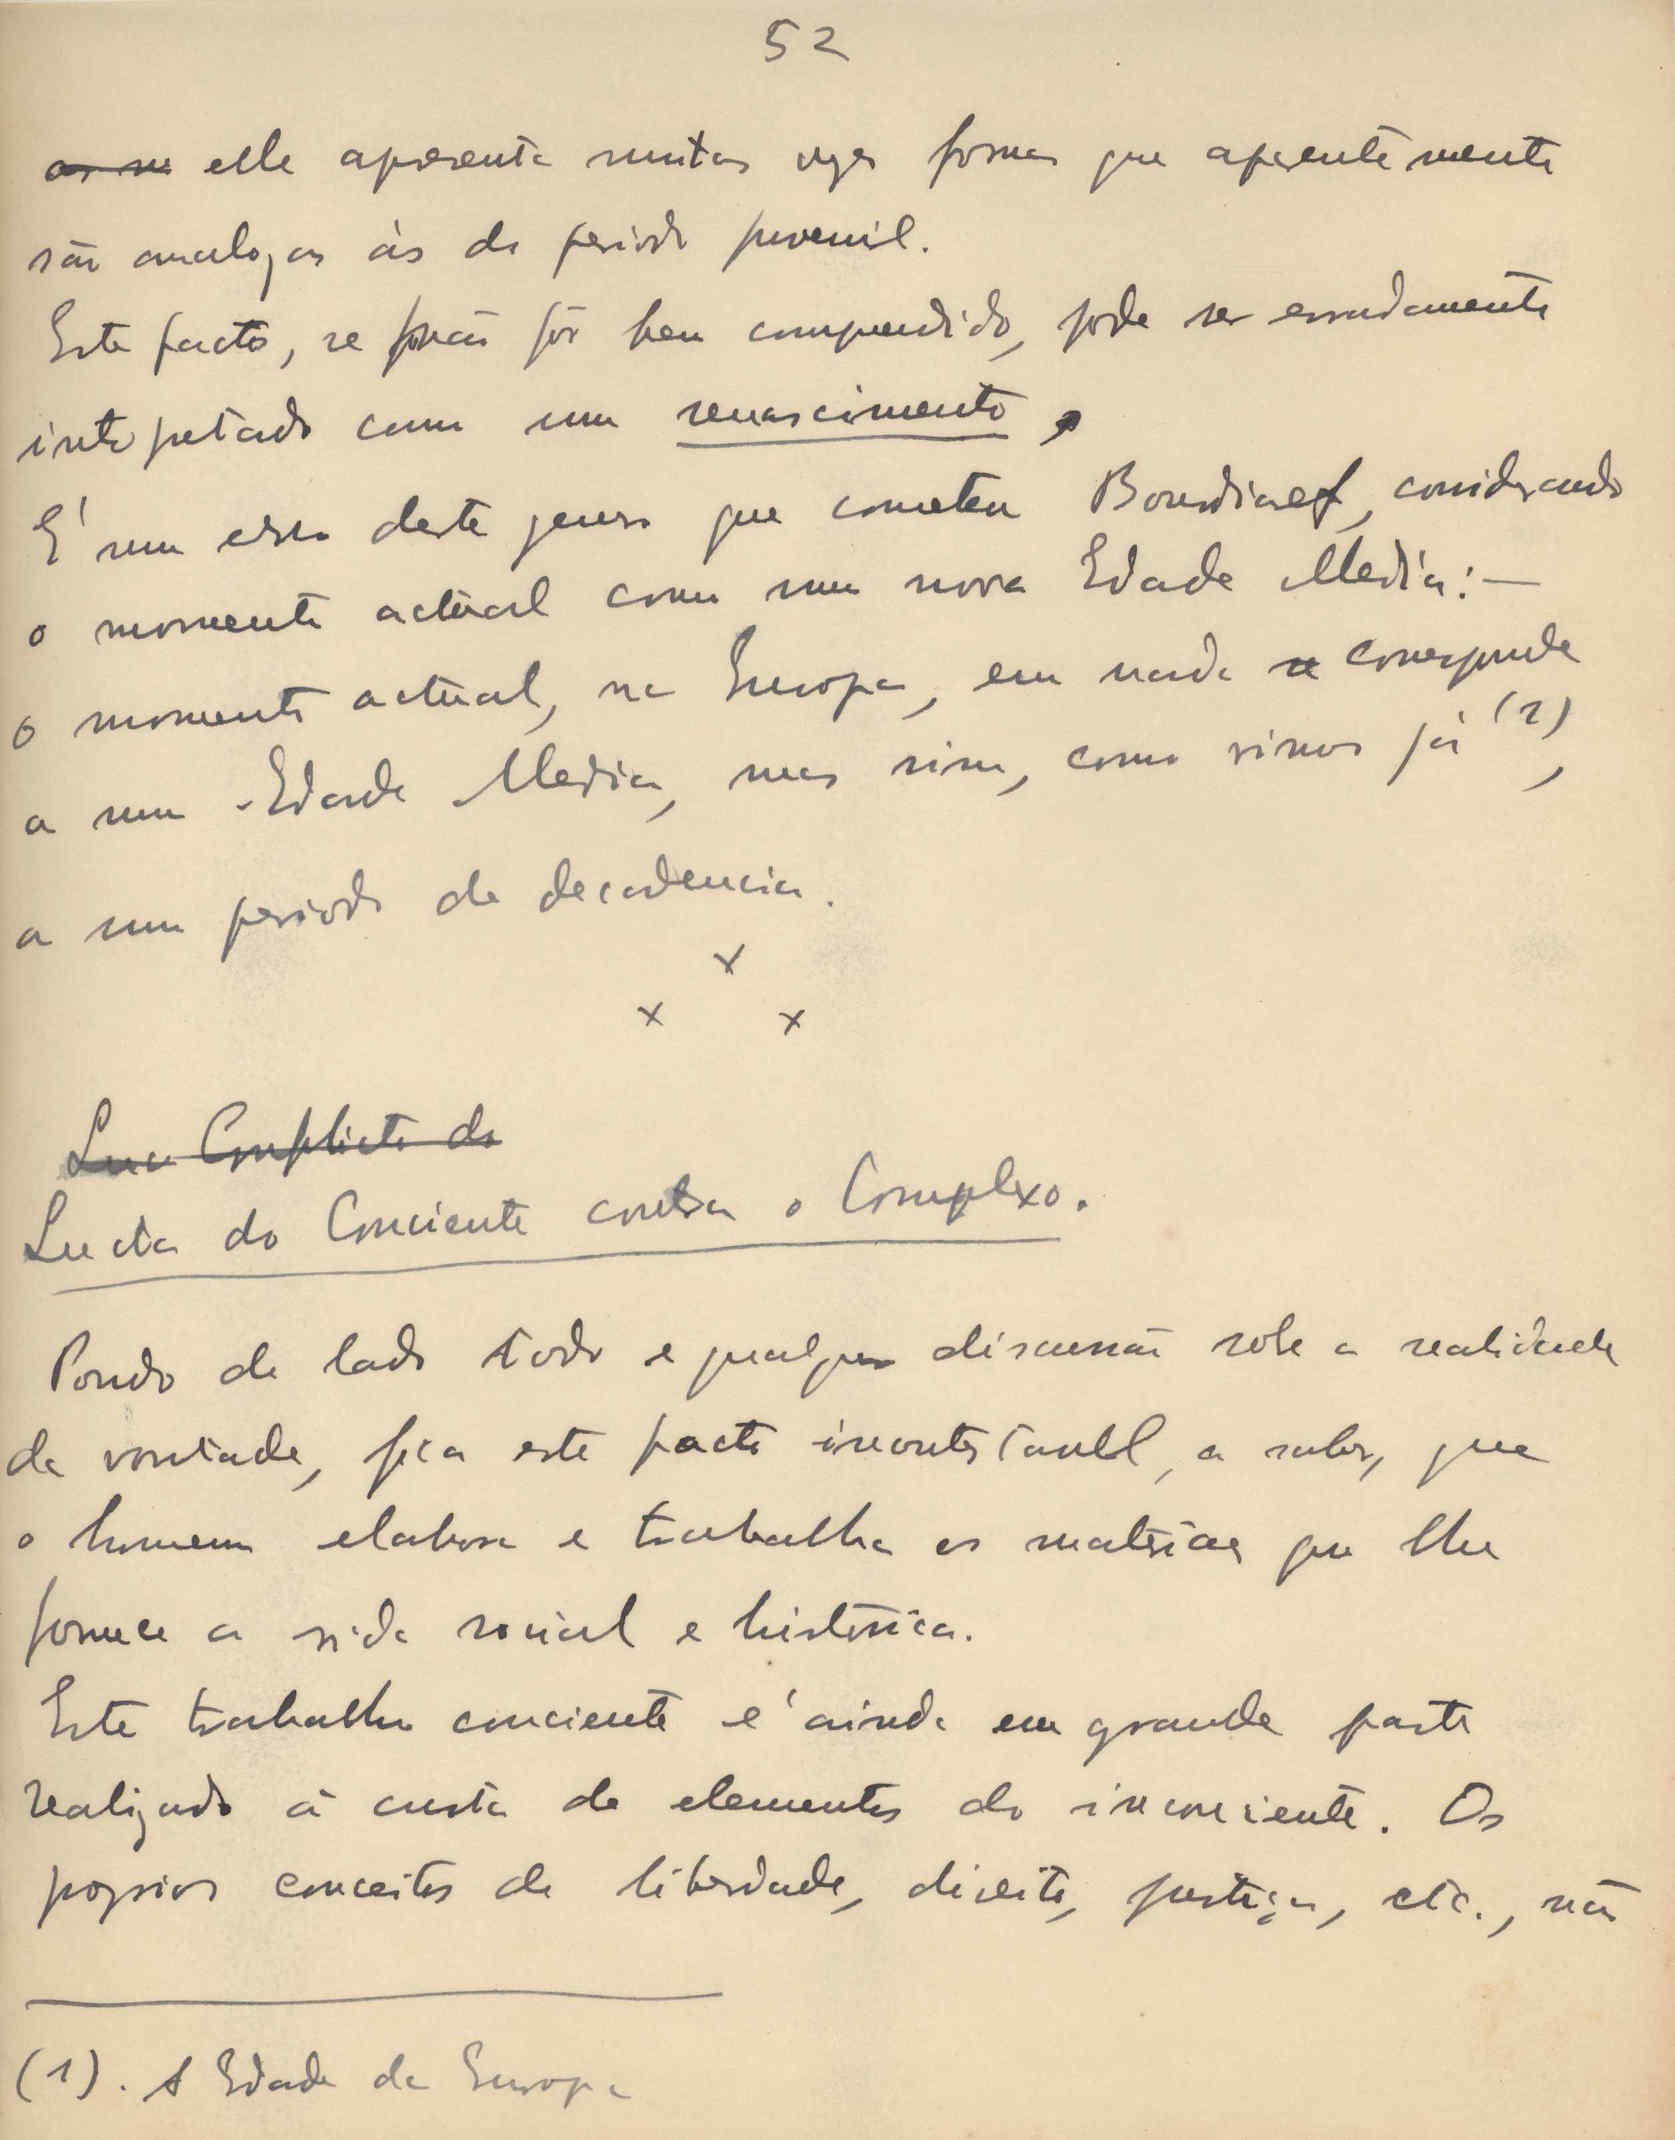 52
elle apresenta muitas vezes formas que aparentemente
são analogas ás do periodo juvenil.
Este facto, se não fôr bem comprendido, pode ser erradamente
interpretado como um renascimento.
É um erro deste genero que cometeu considerando
o momento actual como uma nova Edade Media: —
o momento actual, na Europa, em nada corresponde
a uma Edade Media, mas sim, como vimos já (1),
a um periodo de decadencia.
x
x x
Luc Conflicto do
Lucta do Conciente contra o Complexo.
Pondo de lado toda e qualquer discussão sobre a realidade
da vontade, fica este facto incontestavel, a saber, que
o homem elabora e trabalha as materias que lhe
fornece a vida social e historica.
Este trabalho conciente é ainda em grande parte
realizado á custa de elementos do inconciente. Os
proprios conceitos de liberdade, direito, justiça, etc., não
(1). A Edade da Europa